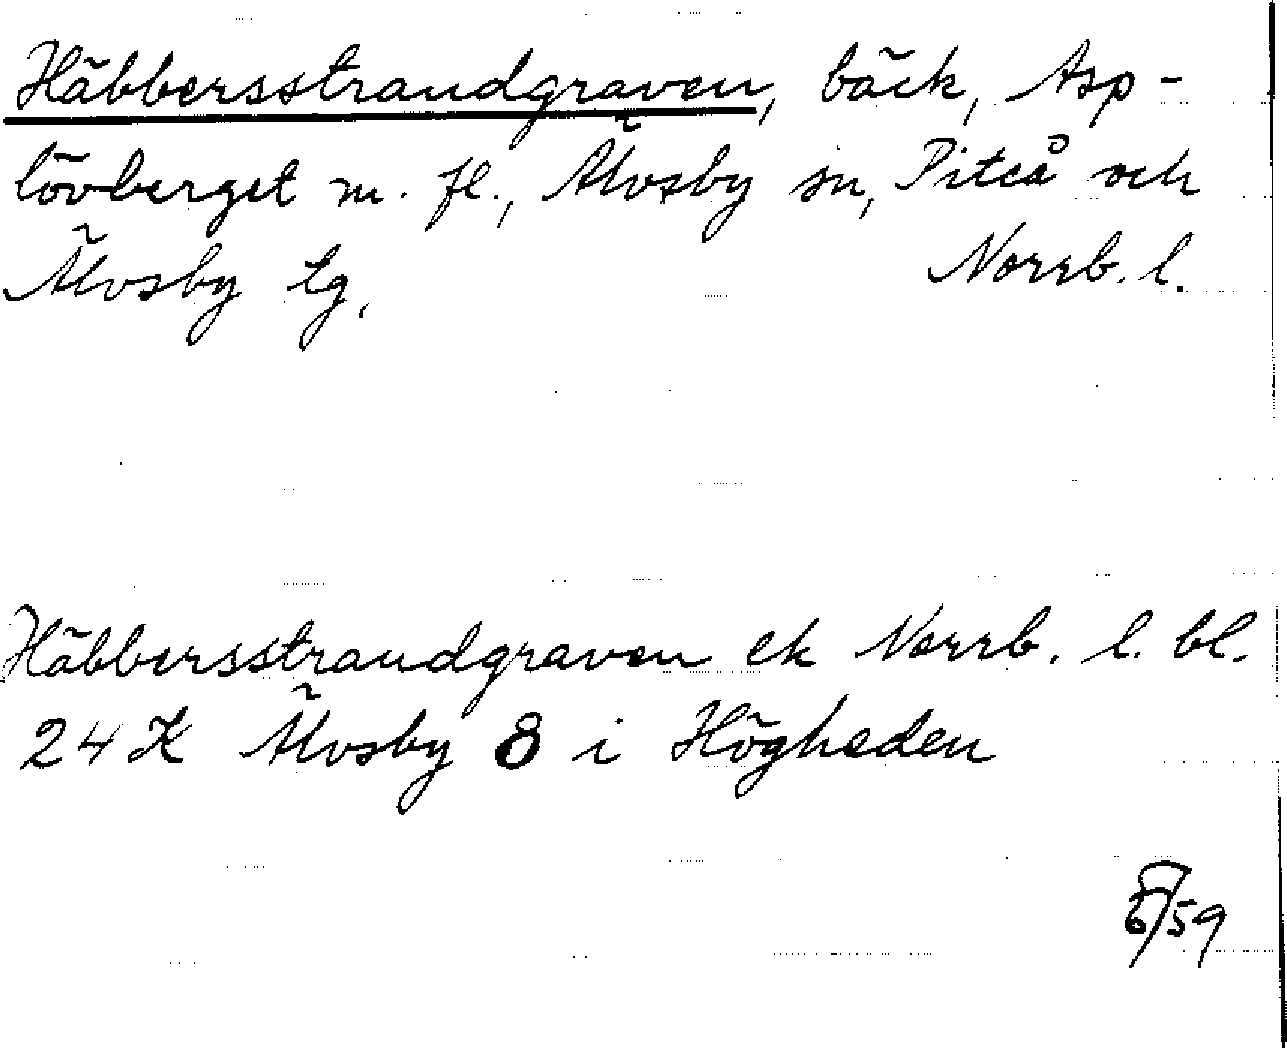 Häbbersstrandgraven, bäck, Asp-
lövberget m. fl., Älvsby sn, Piteå och
Älvsby tg, Norrb. l.
Häbbersstrandgraven ek Norrb. l. bl.
24 K Älvsby 8 i Högheden
/59